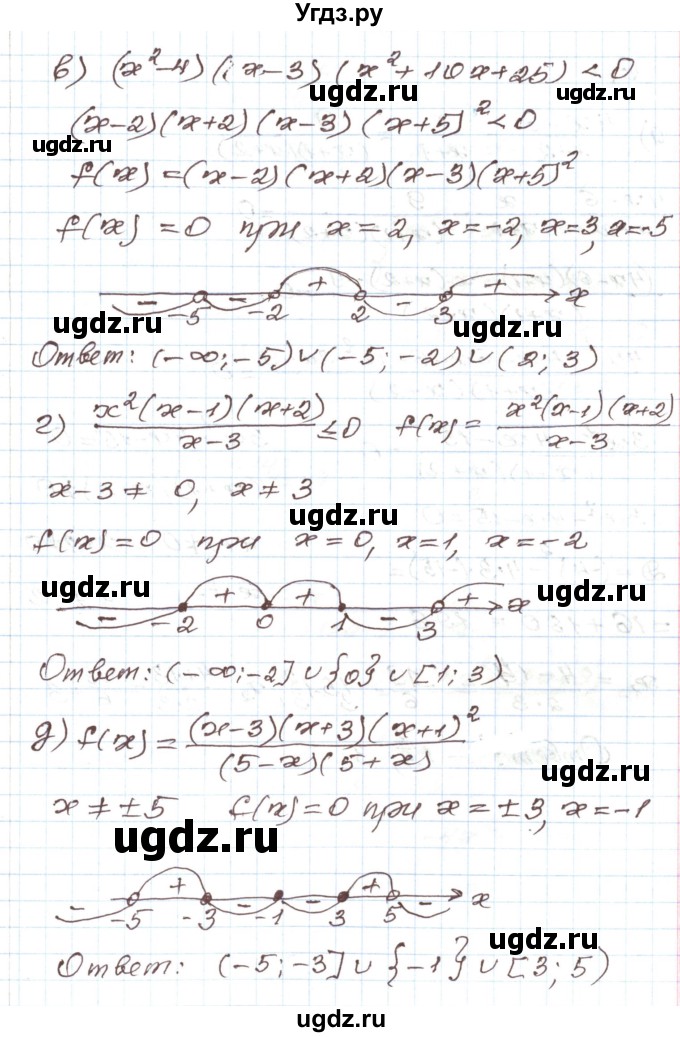 Угдз.ру
в) (x²-4)(x-3)(x²+10x+25)<0
ugdz.ru
(x-2)(x+2)(x-3)(x+5)²<0
ugdz.ru
ugdz.ru
f(x)=(x-2)(x+2)(x-3)(x+5)²
f(x)=0 при x=2, x=-2, x=3, x=-5
- - + - + x
-5 -2 2 3
ugdz.ru
ugdz.ru
Ответ: (-∞;-5)∪(-5;-2)∪(2;3)
г) x²(x-1)(x+2)/x-3 ≤0 f(x)= x²(x-1)(x+2)/x-3
ugdz.ru
ugdz.ru
x-3≠0, x≠3
ugdz.ru
f(x)=0 при x=0, x=1, x=-2
ugdz.ru
ugdz.ru
- + + - + x
-2 0 1 3
Ответ: (-∞;-2]∪{0}∪[1;3)
ugdz.ru
д) f(x)= (x-3)(x+3)(x+1)²/(5-x)(5+x)
ugdz.ru
ugdz.ru
x≠±5 f(x)=0 при x=±3, x=-1
ugdz.ru
- + - - + - x
-5 -3 -1 3 5
ugdz.ru
Ответ: (-5;-3]∪{-1}∪[3;5)
ugdz.ru
ugdz.ru